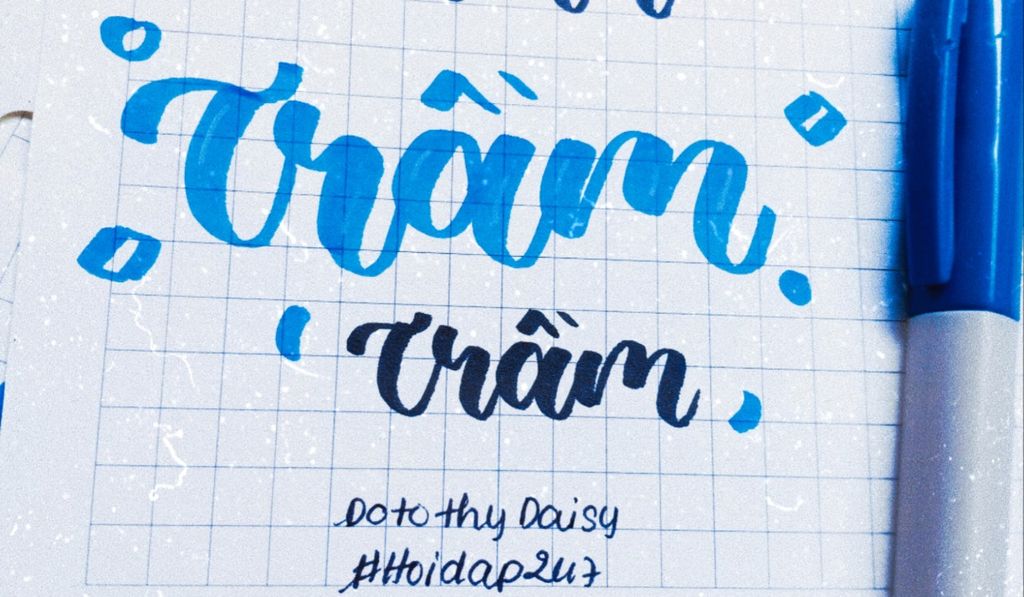 Trầm
Trầm
Dotothy Daisy
#Hoidap247